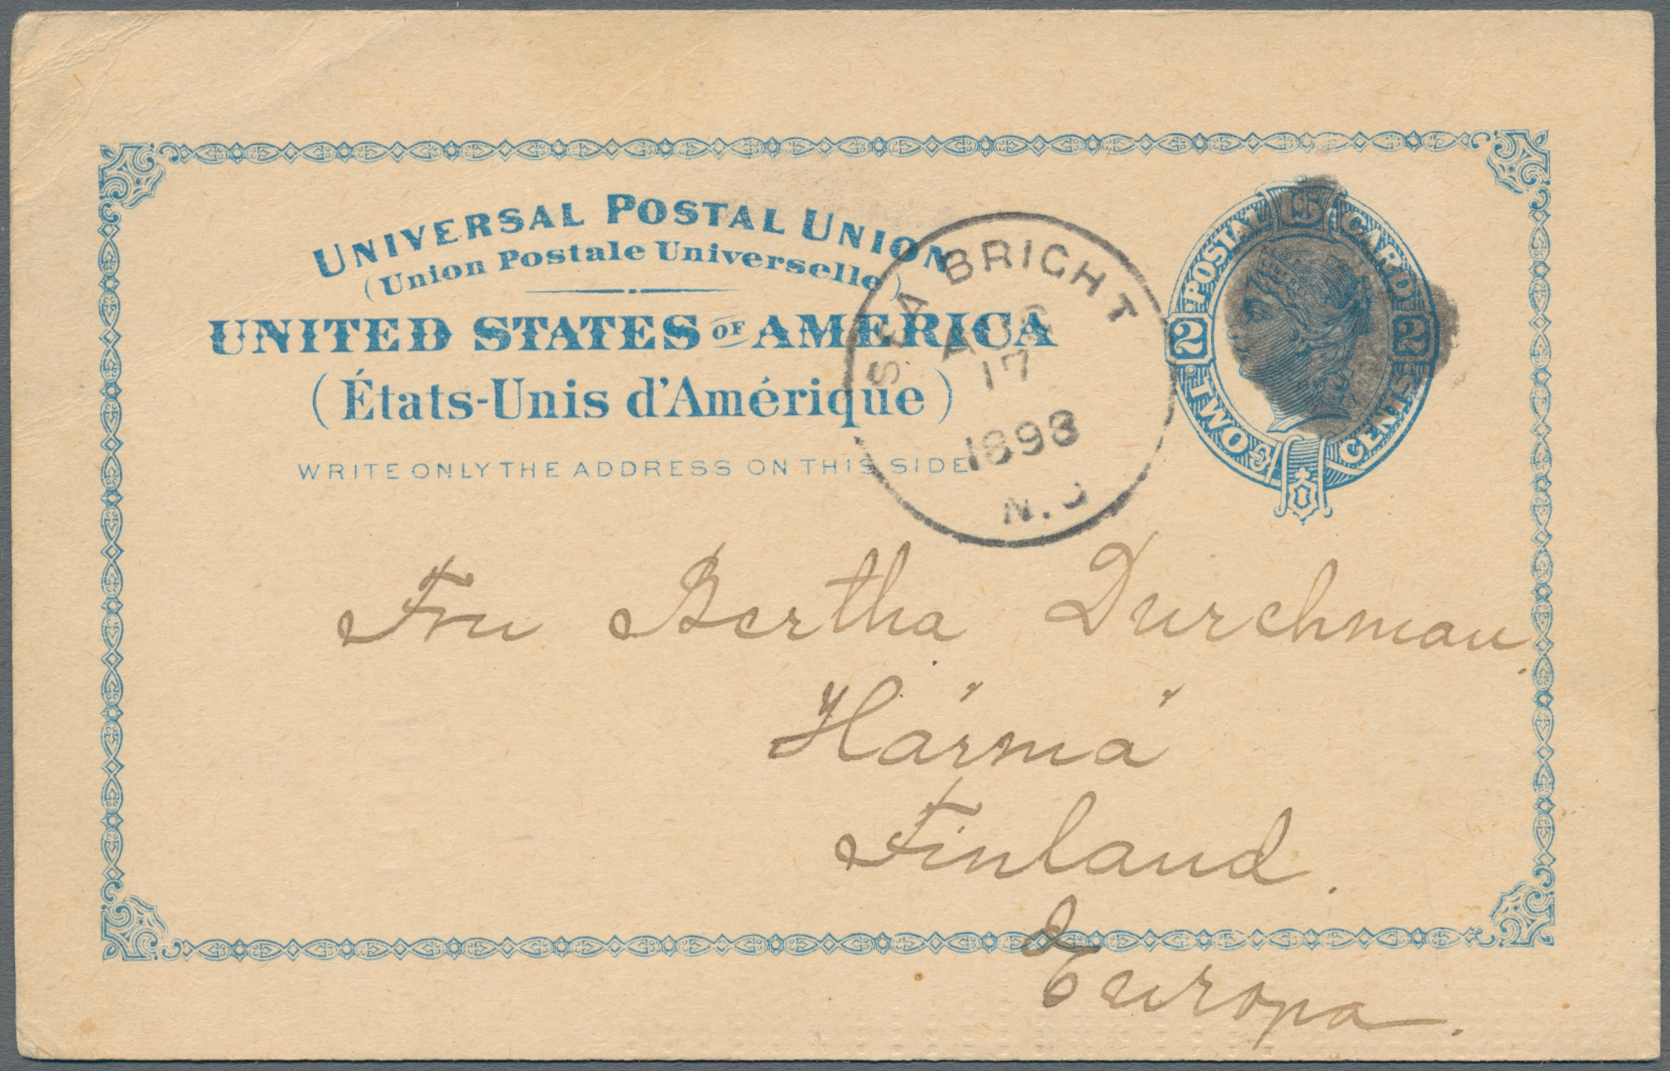 UNIVERSAL POSTAL UNION
(Union Postale Universelle)
UNITED STATES OF AMERICA
(États-Unis d'Amérique)
WRITE ONLY THE ADDRESS ON THIS SIDE
SEA BRIGHT
AUG
17
1898
N.J
POSTAL CARD
2 2
TWO CENTS
Fru Bertha Durchman
Härmä
Finland.
Europa.